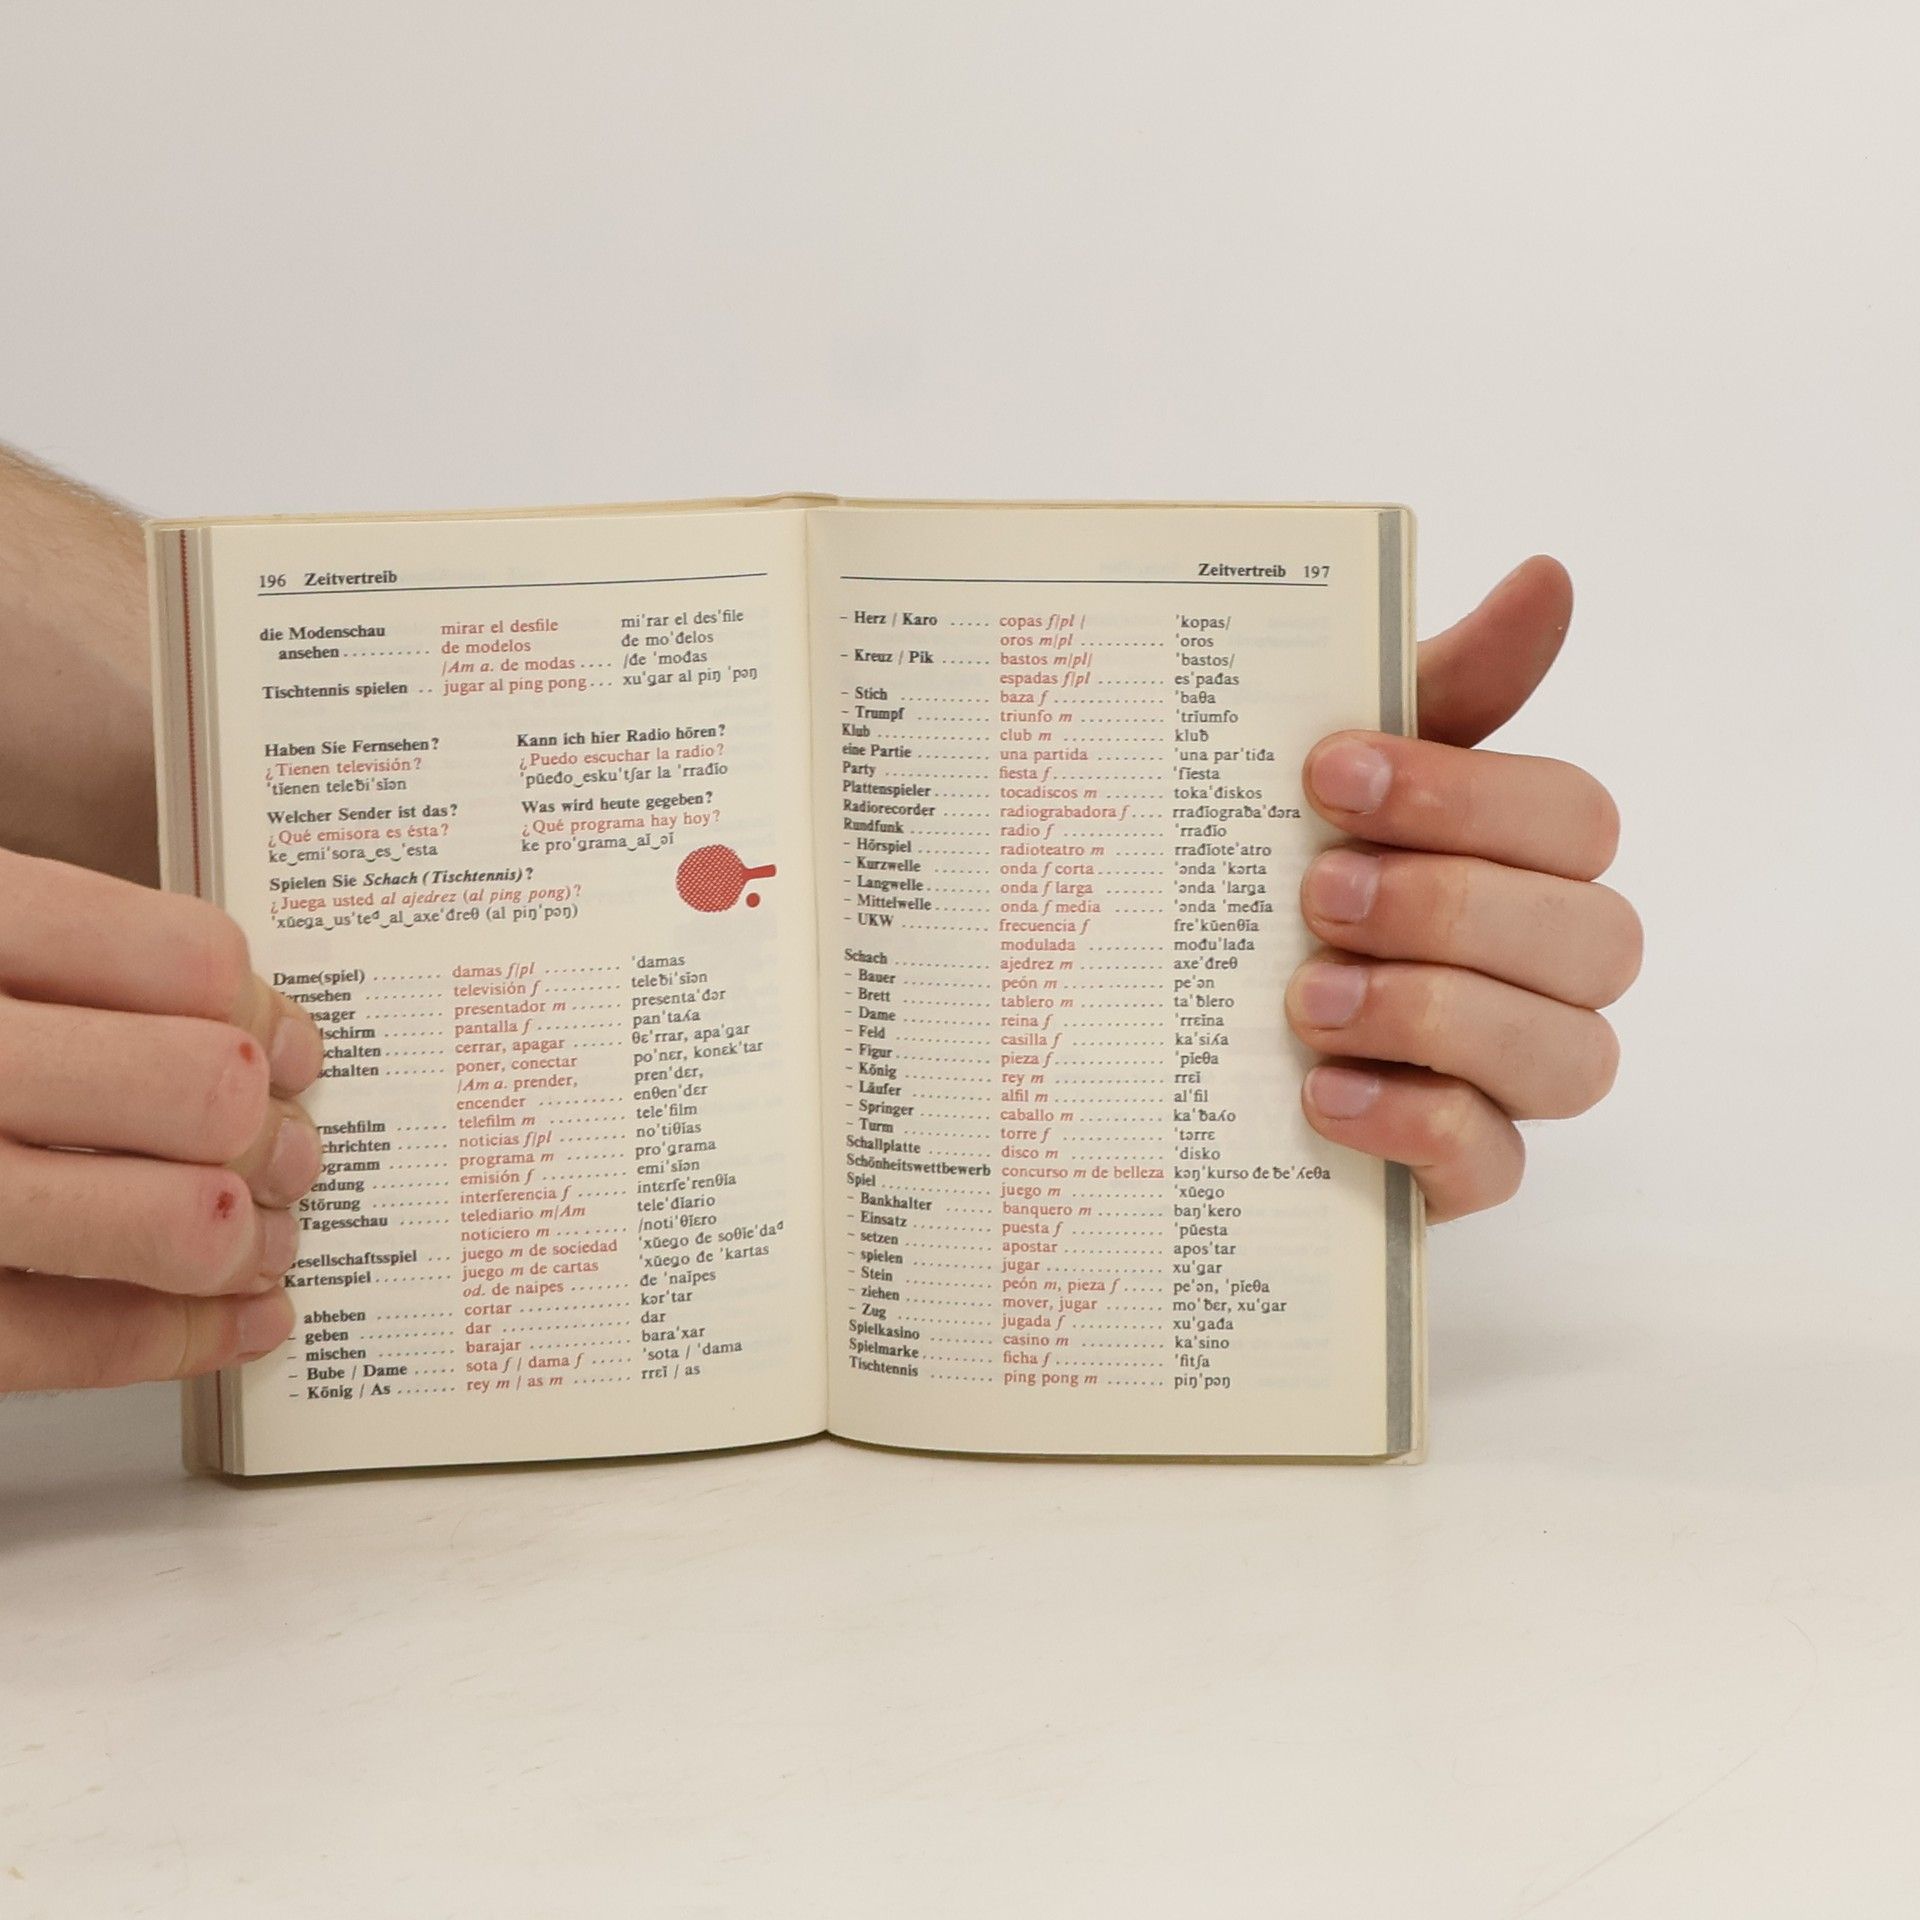 196 Zeitvertreib
die Modenschau mirar el desfile miˈrar el desˈfile
ansehen .......... de modelos đe moˈđelos
/Am a. de modas .... /đe ˈmođas
Tischtennis spielen .. jugar al ping pong... xuˈgar al piŋ ˈpɔŋ
Haben Sie Fernsehen?
¿Tienen televisión?
ˈtĭenen teleƀiˈsĭɔn
Welcher Sender ist das?
¿Qué emisora es ésta?
ke‿emiˈsora‿es‿ˈesta
Kann ich hier Radio hören?
¿Puedo escuchar la radio?
ˈpŭeđo‿eskuˈtʃar la ˈrrađĭo
Was wird heute gegeben?
¿Qué programa hay hoy?
ke proˈgrama‿aĭ‿ɔĭ
Spielen Sie Schach (Tischtennis)?
¿Juega usted al ajedrez (al ping pong)?
ˈxŭega‿usˈteᵈ‿al‿axeˈđreθ (al piŋˈpɔŋ)
Dame(spiel) ........ damas f/pl ......... ˈdamas
ernsehen ......... televisión f ......... teleƀiˈsĭɔn
sager ......... presentador m ...... presentaˈđɔr
schirm ....... pantalla f ......... panˈtaʎa
schalten ....... cerrar, apagar ...... θɛˈrrar, apaˈgar
schalten ....... poner, conectar poˈnɛr, konɛkˈtar
/Am a. prender, prenˈdɛr,
encender .......... enθenˈdɛr
rnsehfilm ...... telefilm m ......... teleˈfilm
chrichten ....... noticias f/pl ........ noˈtiθĭas
ogramm ....... programa m ....... proˈgrama
endung ......... emisión f .......... emiˈsĭɔn
Störung ......... interferencia f ...... intɛrfeˈrenθĭa
Tagesschau ...... telediario m/Am teleˈđĭario
noticiero m ........ /notiˈθĭero
esellschaftsspiel ... juego m de sociedad ˈxŭego đe soθĭeˈdaᵈ
Kartenspiel ......... juego m de cartas ˈxŭego đe ˈkartas
od. de naipes ....... đe ˈnaĭpes
abheben ......... cortar ............. kɔrˈtar
– geben ........... dar ............... dar
– mischen ......... barajar ............ baraˈxar
– Bube / Dame ..... sota f / dama f ..... ˈsota / ˈdama
– König / As ....... rey m / as m ....... rrɛĭ / as
Zeitvertreib 197
– Herz / Karo ..... copas f/pl / ˈkopas/
oros m/pl ........... ˈoros
– Kreuz / Pik ...... bastos m/pl/ ˈbastos/
espadas f/pl ........ esˈpađas
– Stich ........... baza f ............. ˈbaθa
– Trumpf ......... triunfo m .......... ˈtrĭumfo
Klub ............. club m ............ kluƀ
eine Partie ......... una partida ........ ˈuna parˈtiđa
Party ............. fiesta f............. ˈfĭesta
Plattenspieler ....... tocadiscos m ....... tokaˈđiskos
Radiorecorder ...... radiograbadora f .... rrađĭograƀaˈđɔra
Rundfunk .......... radio f ............ ˈrrađĭo
– Hörspiel ........ radioteatro m ...... rrađĭoteˈatro
– Kurzwelle ....... onda f corta ........ ˈɔnda ˈkɔrta
– Langwelle ....... onda f larga ........ ˈɔnda ˈlarga
– Mittelwelle ...... onda f media ...... ˈɔnda ˈmeđĭa
– UKW .......... frecuencia f freˈkŭenθĭa
modulada ......... mođuˈlađa
Schach ............ ajedrez m .......... axeˈđreθ
– Bauer ........... peón m ............ peˈɔn
– Brett ........... tablero m .......... taˈƀlero
– Dame .......... reina f ............ ˈrrɛĭna
– Feld ............ casilla f ........... kaˈsiʎa
– Figur ........... pieza f............. ˈpĭeθa
– König .......... rey m ............. rrɛĭ
– Läufer .......... alfil m ............. alˈfil
– Springer ........ caballo m .......... kaˈƀaʎo
– Turm ........... torre f ............ ˈtɔrrɛ
Schallplatte ........ disco m ........... ˈdisko
Schönheitswettbewerb concurso m de belleza kɔŋˈkurso đe ƀeˈʎeθa
Spiel .............. juego m ........... ˈxŭego
– Bankhalter ...... banquero m ........ baŋˈkero
– Einsatz ......... puesta f ........... ˈpŭesta
– setzen .......... apostar ............ aposˈtar
– spielen ......... jugar .............. xuˈgar
– Stein ........... peón m, pieza f ..... peˈɔn, ˈpĭeθa
– ziehen .......... mover, jugar ....... moˈƀɛr, xuˈgar
– Zug ............ jugada f ........... xuˈgađa
Spielkasino ........ casino m .......... kaˈsino
Spielmarke ......... ficha f ............. ˈfitʃa
Tischtennis ........ ping pong m ....... piŋˈpɔŋ